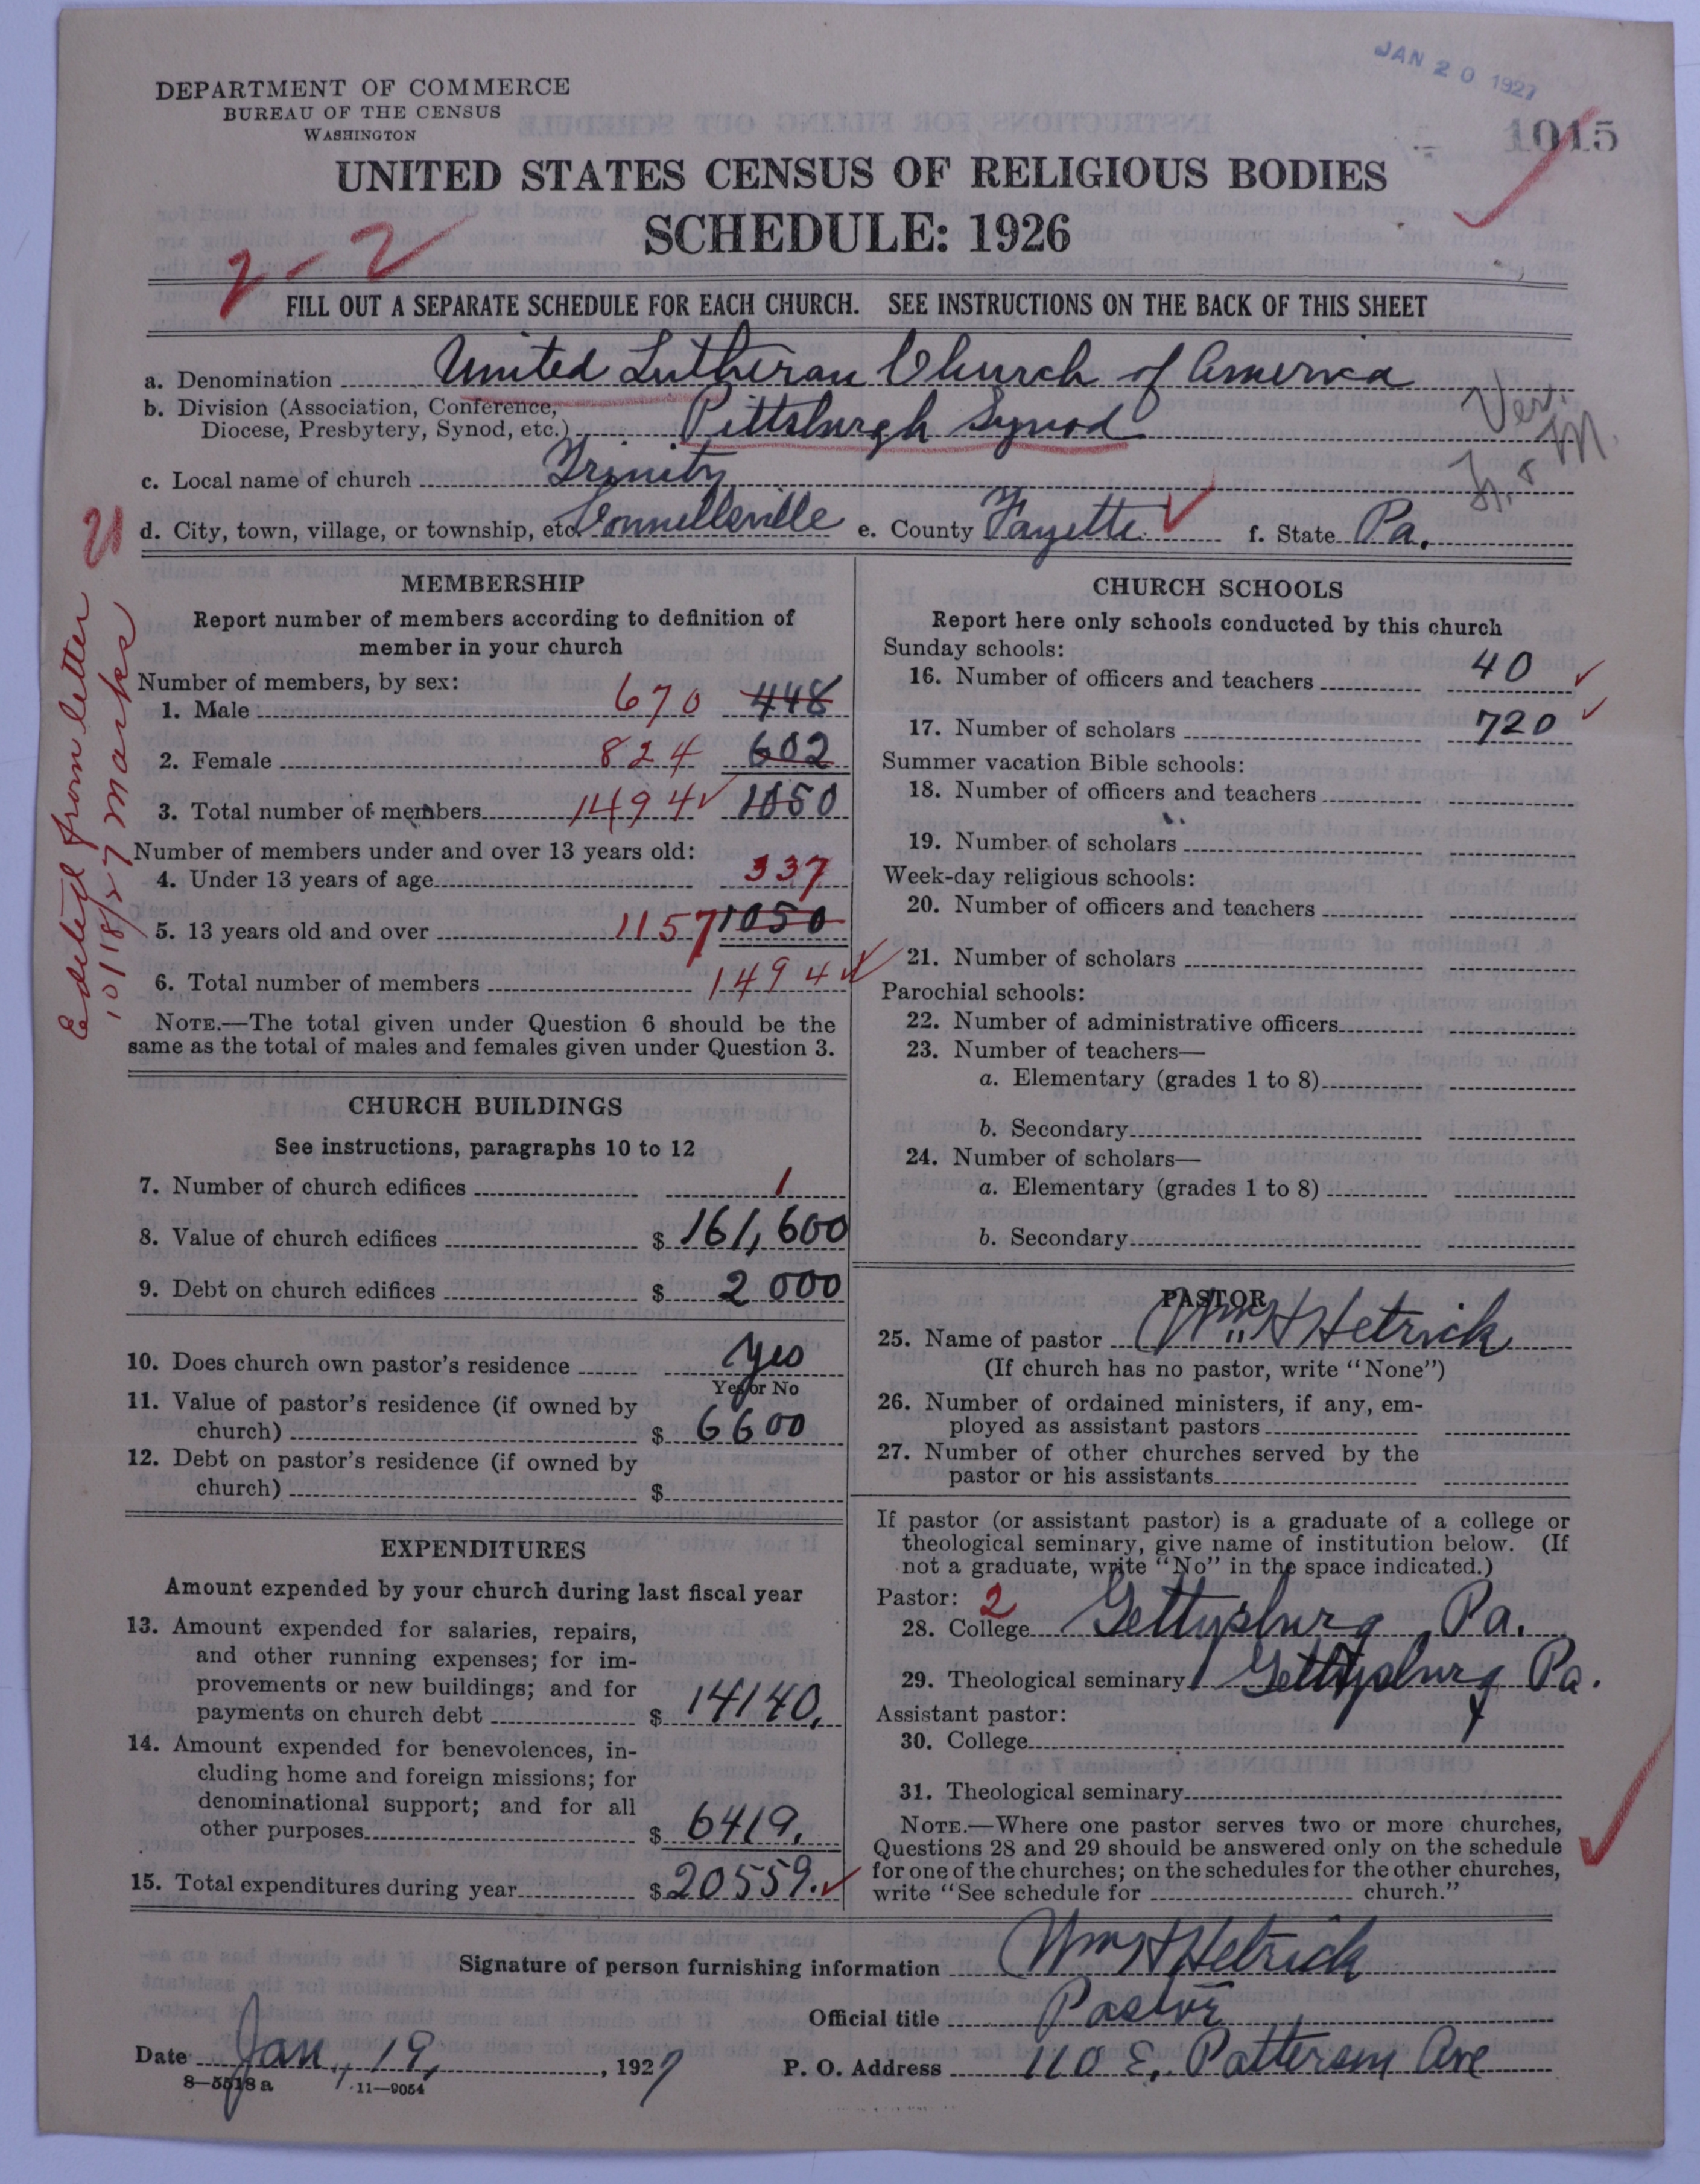 JAN 20 1927
1015
DEPARTMENT OF COMMERCE
BUREAU OF THE CENSUS
WASHINGTON
UNITED STATES CENSUS OF RELIGIOUS BODIES
SCHEDULE: 1926
2-2
FILL OUT A SEPARATE SCHEDULE FOR EACH CHURCH. SEE INSTRUCTIONS ON THE BACK OF THIS SHEET
a. Denomination United Lutheran Church of America
b. Division (Association, Conference,
Diocese, Presbytery, Synod, etc.) Pittsburgh Synod
Ver.
c. Local name of church Trinity
d. City, town, village, or township, etc. Connellsville e. County Fayette f. State Pa.
Edited from letter
10/18/27 Marks
MEMBERSHIP
Report number of members according to definition of
member in your church
Number of members, by sex:
1. Male 670 448
2. Female 824 602
3. Total number of members 1494 1050
Number of members under and over 13 years old:
4. Under 13 years of age 337
5. 13 years old and over 1157 1050
6. Total number of members 1494
NOTE.—The total given under Question 6 should be the
same as the total of males and females given under Question 3.
CHURCH BUILDINGS
See instructions, paragraphs 10 to 12
7. Number of church edifices 1
8. Value of church edifices $ 161,600
9. Debt on church edifices $ 2000
10. Does church own pastor's residence yes
Yes or No
11. Value of pastor's residence (if owned by
church) $ 6600
12. Debt on pastor's residence (if owned by
church) $
EXPENDITURES
Amount expended by your church during last fiscal year
13. Amount expended for salaries, repairs,
and other running expenses; for im-
provements or new buildings; and for
payments on church debt $ 14140.
14. Amount expended for benevolences, in-
cluding home and foreign missions; for
denominational support; and for all
other purposes $ 6419.
15. Total expenditures during year $ 20559.
CHURCH SCHOOLS
Report here only schools conducted by this church
Sunday schools:
16. Number of officers and teachers 40
17. Number of scholars 720
Summer vacation Bible schools:
18. Number of officers and teachers
19. Number of scholars
Week-day religious schools:
20. Number of officers and teachers
21. Number of scholars
Parochial schools:
22. Number of administrative officers
23. Number of teachers—
a. Elementary (grades 1 to 8)
b. Secondary
24. Number of scholars—
a. Elementary (grades 1 to 8)
b. Secondary
PASTOR
25. Name of pastor Wm H Hetrick
(If church has no pastor, write "None")
26. Number of ordained ministers, if any, em-
ployed as assistant pastors
27. Number of other churches served by the
pastor or his assistants
If pastor (or assistant pastor) is a graduate of a college or
theological seminary, give name of institution below. (If
not a graduate, write "No" in the space indicated.)
Pastor: 2
28. College Gettysburg Pa.
29. Theological seminary Gettysburg Pa.
Assistant pastor:
30. College
31. Theological seminary
NOTE.—Where one pastor serves two or more churches,
Questions 28 and 29 should be answered only on the schedule
for one of the churches; on the schedules for the other churches,
write "See schedule for church."
Signature of person furnishing information Wm H Hetrick
Official title Pastor
Date Jan. 19, 1927 P. O. Address 110 E. Patterson Ave
8—5518a 11—9054